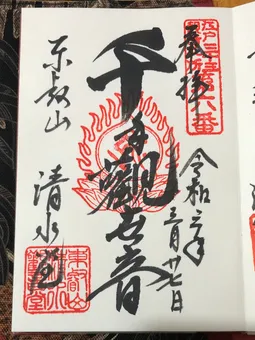 奉拝
江戸三十三所第六番
令和二年
三月廿七日
千手観世音
東叡山
清水堂
東叡山
清水
観音堂